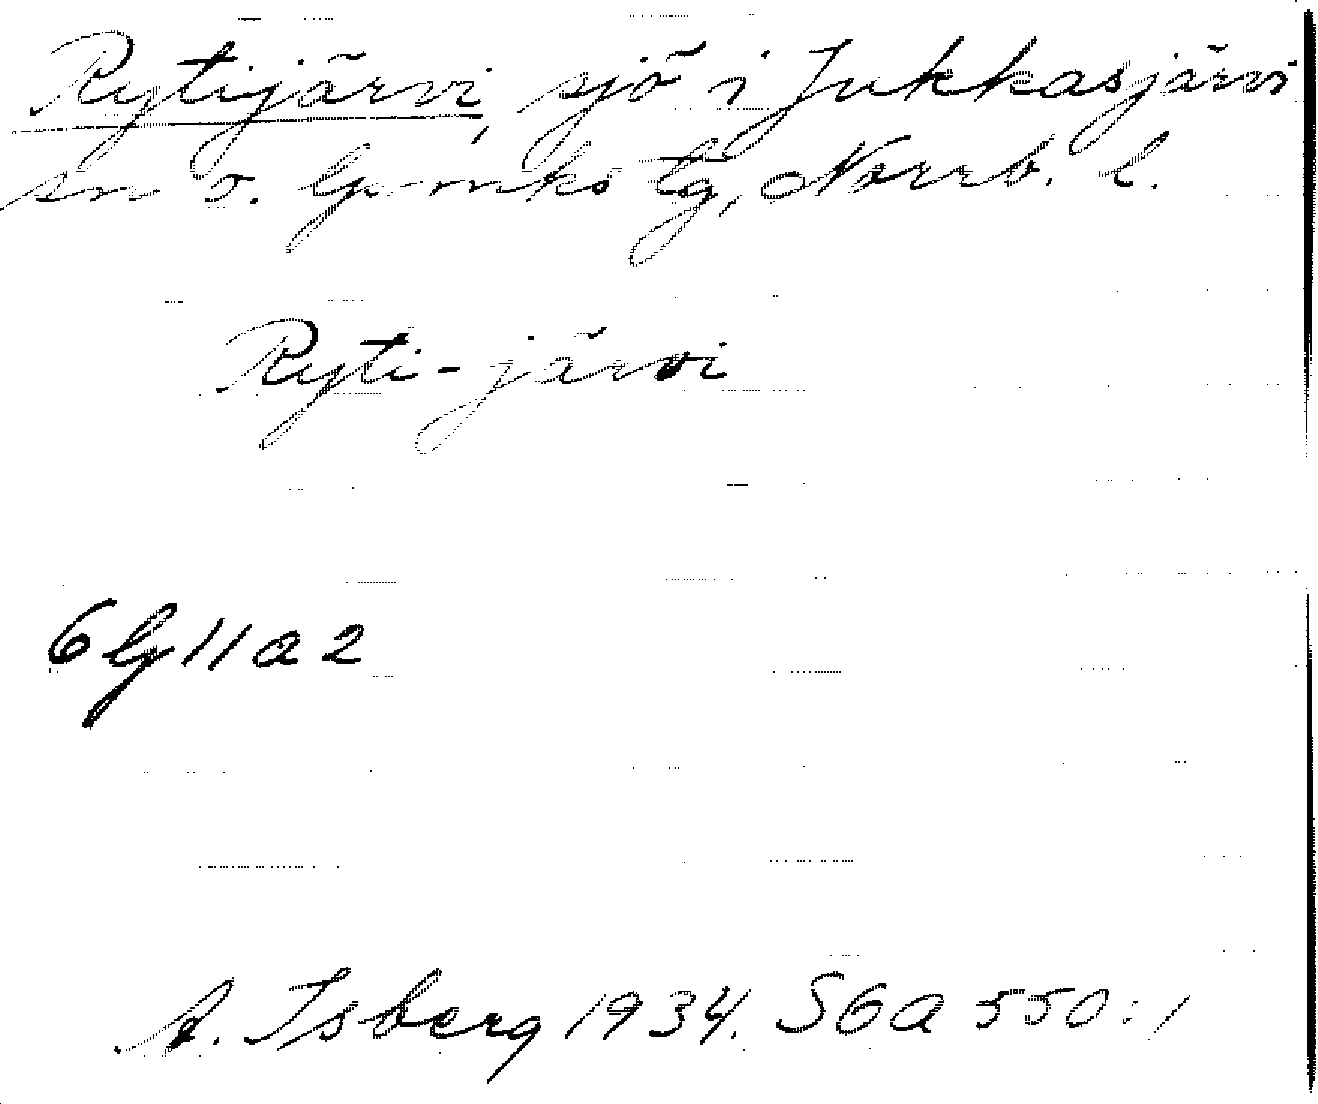 Rytijärvi, sjö i Jukkasjärvi
sn o. lpmks tg, Norrb. l.
Ryti-järvi
6 lg 11 a 2
A. Isberg 1934. S6a 550:1